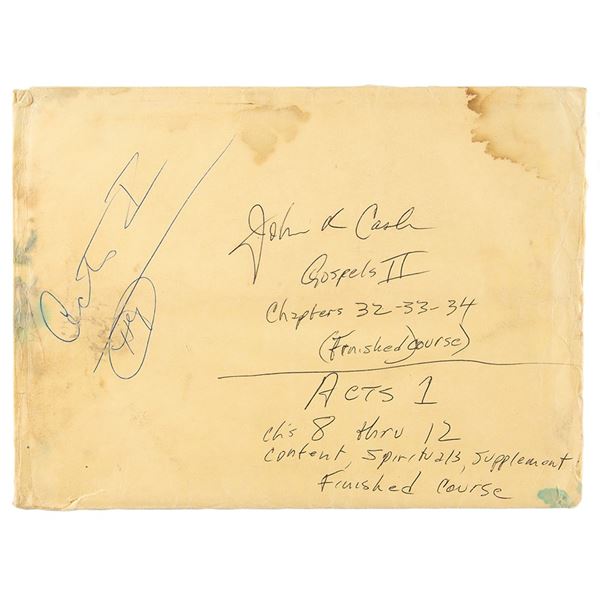 Acts I
John R Cash
Gospels II
Chapters 32-33-34
(Finished Course)
Acts 1
ch's 8 thru 12
content, Spirituals, Supplement
Finished Course